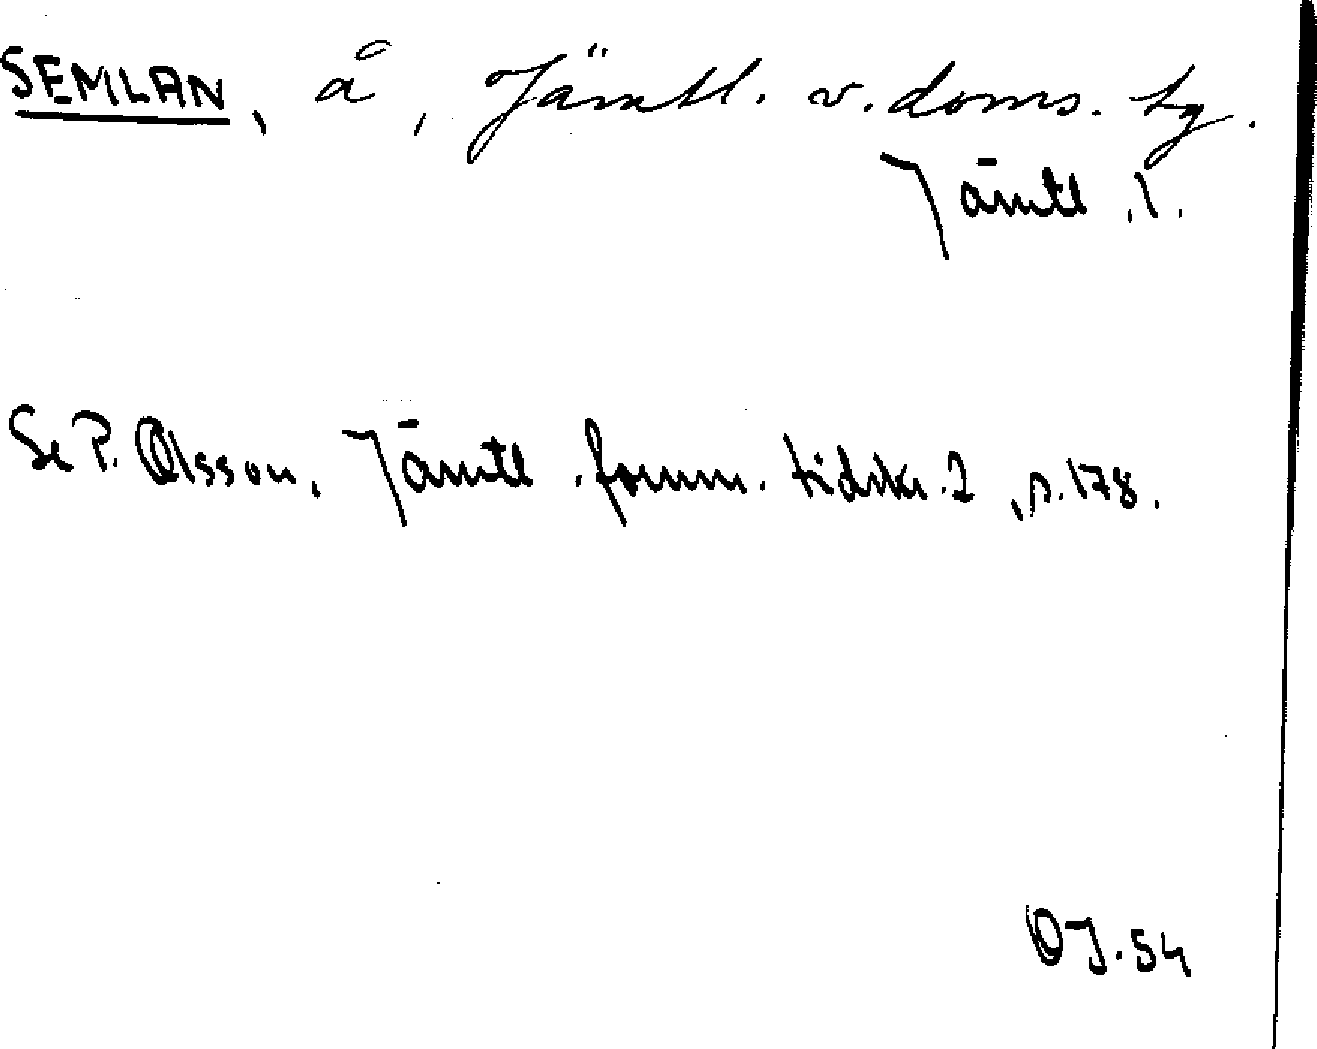 SEMLAN, å, Jämtl. v. doms. tg.
Jämtl. l.
Se P. Olsson, Jämtl. fornm. tidskr. 2, s. 178.
OJ. 54